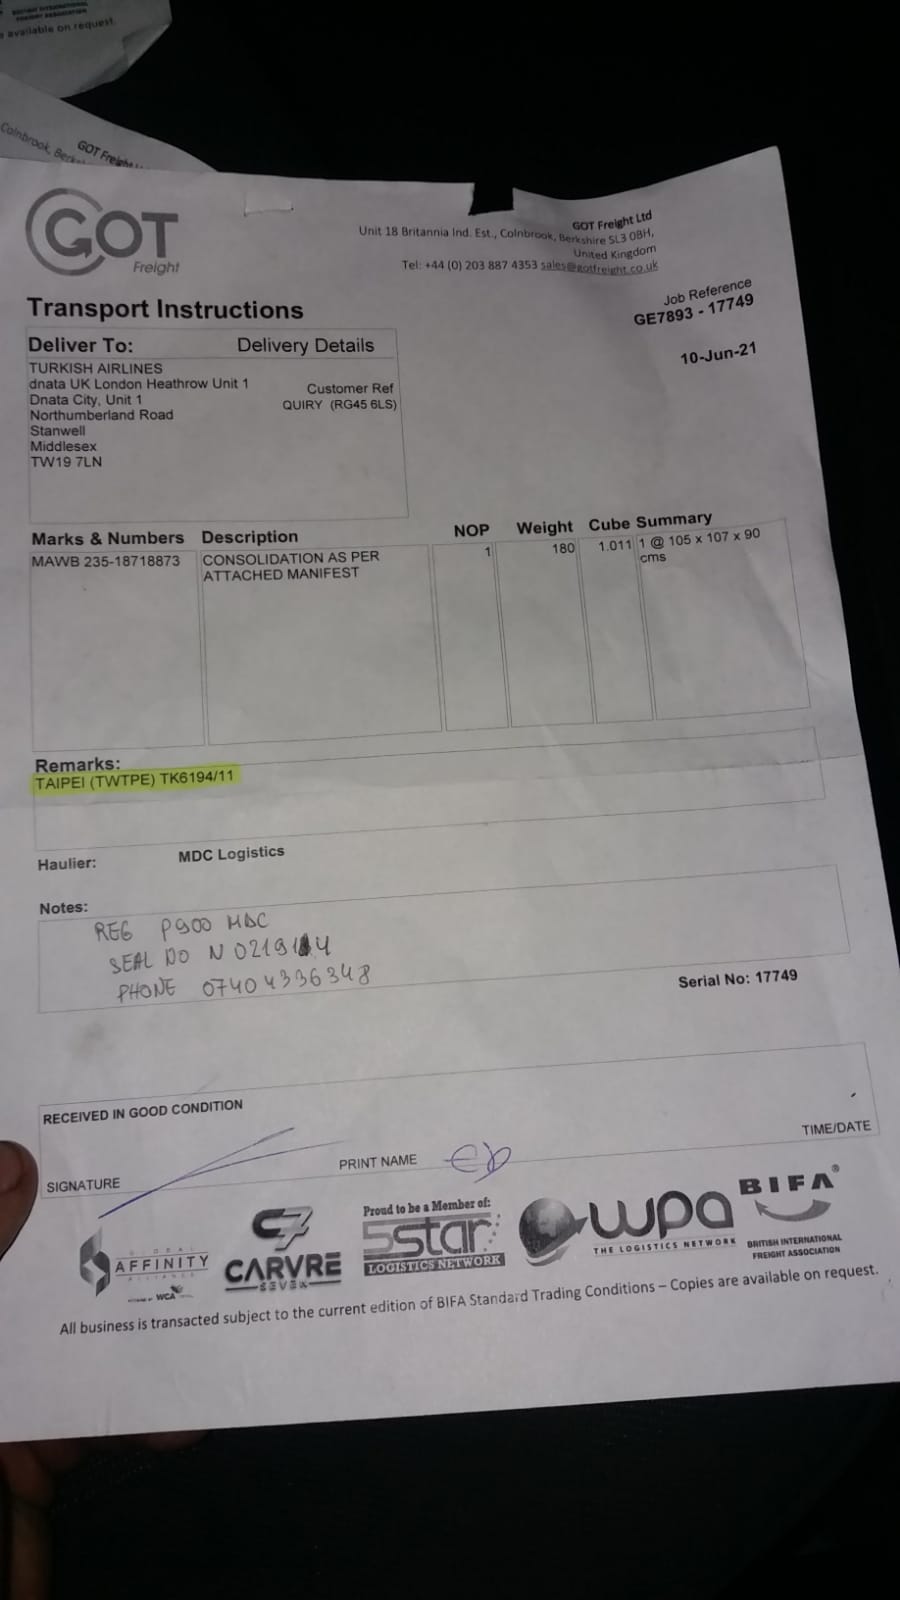 BRITISH INTERNATIONAL
FREIGHT ASSOCIATION
available on request.
Colnbrook, Berks
GOT Freight
GOT
Freight
GOT Freight Ltd
Unit 18 Britannia Ind. Est., Colnbrook, Berkshire SL3 0BH,
United Kingdom
Tel: +44 (0) 203 887 4353 sales@gotfreight.co.uk
Transport Instructions
Job Reference
GE7893 - 17749
10-Jun-21
Deliver To: Delivery Details
TURKISH AIRLINES
dnata UK London Heathrow Unit 1
Dnata City, Unit 1
Northumberland Road
Stanwell
Middlesex
TW19 7LN
Customer Ref
QUIRY (RG45 6LS)
Marks & Numbers Description NOP Weight Cube Summary
MAWB 235-18718873 CONSOLIDATION AS PER 1 180 1.011 1 @ 105 x 107 x 90
ATTACHED MANIFEST cms
Remarks:
TAIPEI (TWTPE) TK6194/11
Haulier: MDC Logistics
Notes:
REG P900 MDC
SEAL NO N 0219144
PHONE 07404336348
Serial No: 17749
RECEIVED IN GOOD CONDITION
SIGNATURE PRINT NAME TIME/DATE
GLOBAL
AFFINITY
ALLIANCE
WCA
C7
CARVRE
SEVEN
Proud to be a Member of:
5star
LOGISTICS NETWORK
wpa
THE LOGISTICS NETWORK
BIFA®
BRITISH INTERNATIONAL
FREIGHT ASSOCIATION
All business is transacted subject to the current edition of BIFA Standard Trading Conditions – Copies are available on request.